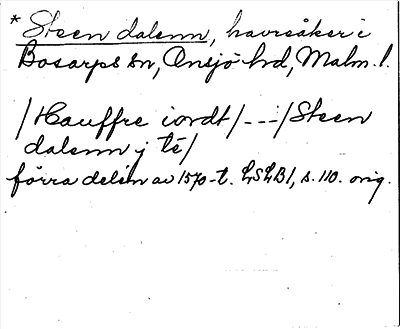 * Steen dalenn, havreåker i
Bosarps sn, Onsjö hd, Malm. l.
/Hauffre iordt/---/Steen
dalenn j té/
förra delen av 1570-t. LSLB1, s. 110. orig.